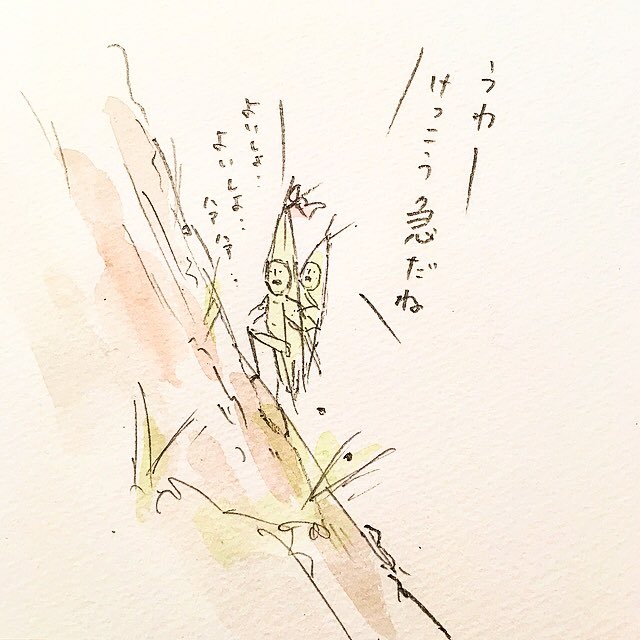 うわー
けっこう急だね
よいしょ…
よいしょ…
ハァハァ…